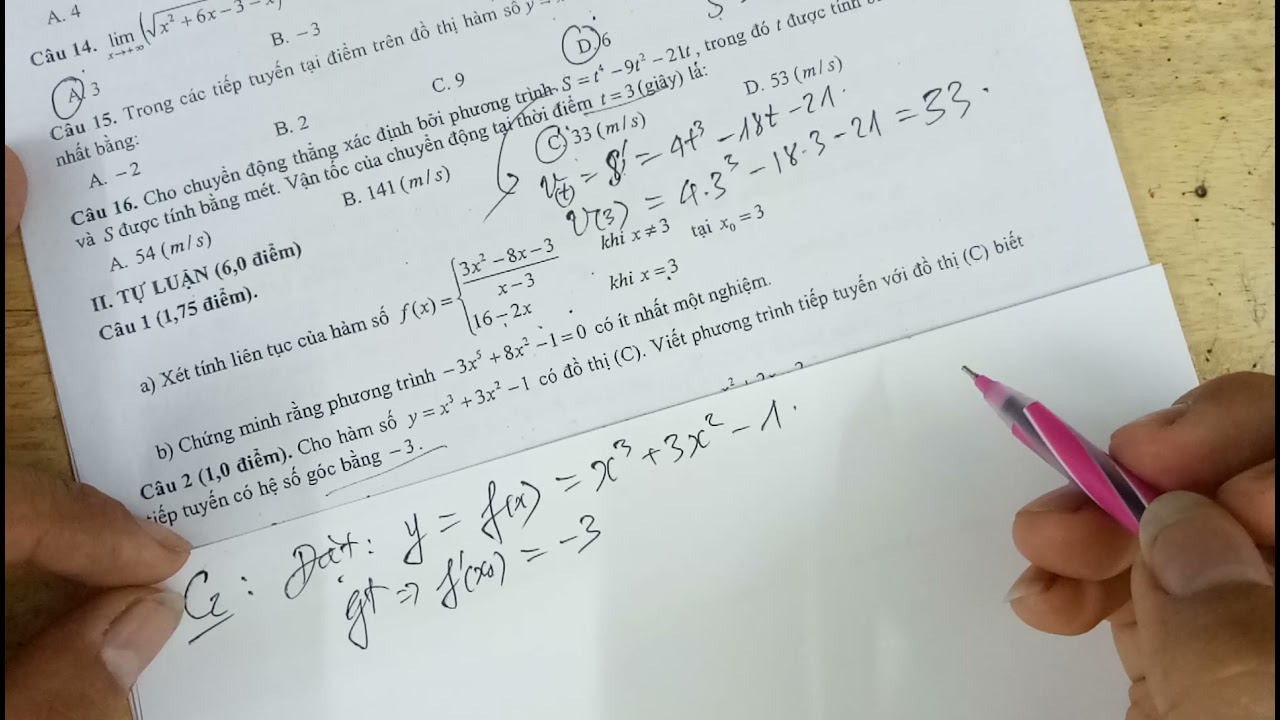 A. 4
Câu 14. lim x→+∞ (√x² + 6x − 3 − x)
A. 3 B. − 3 C. 9 D. 6
Câu 15. Trong các tiếp tuyến tại điểm trên đồ thị hàm số y =
nhất bằng:
A. − 2 B. 2
Câu 16. Cho chuyển động thẳng xác định bởi phương trình S = t⁴ − 9t² − 21t, trong đó t được tính
và S được tính bằng mét. Vận tốc của chuyển động tại thời điểm t = 3 (giây) là:
A. 54 (m/s) B. 141 (m/s) C. 33 (m/s) D. 53 (m/s)
V(t) = S' = 4t³ − 18t − 21.
V(3) = 4.3³ − 18.3 − 21 = 33.
II. TỰ LUẬN (6,0 điểm)
Câu 1 (1,75 điểm).
a) Xét tính liên tục của hàm số f(x) = { (3x² − 8x − 3)/(x − 3) khi x ≠ 3 tại x₀ = 3
16 − 2x khi x = 3
b) Chứng minh rằng phương trình − 3x⁵ + 8x² − 1 = 0 có ít nhất một nghiệm.
Câu 2 (1,0 điểm). Cho hàm số y = x³ + 3x² − 1 có đồ thị (C). Viết phương trình tiếp tuyến với đồ thị (C) biết
tiếp tuyến có hệ số góc bằng − 3.
C2: Đặt: y = f(x) = x³ + 3x² − 1.
gt ⇒ f'(x₀) = −3